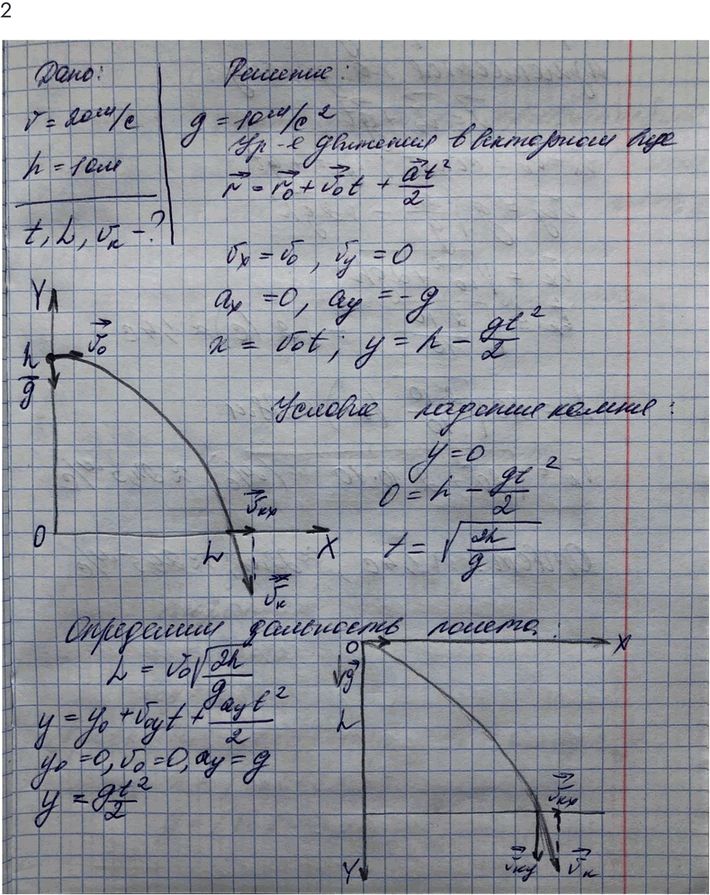 2
Дано:
v = 20 м/с
h = 10 м
t, L, vₖ - ?
Решение:
g = 10 м/с²
Ур-е движения в векторном виде
r⃗ = r⃗₀ + v⃗₀t + a⃗t²/2
vₓ = v₀, vᵧ = 0
aₓ = 0, aᵧ = -g
x = v₀t; y = h - gt²/2
Y
v⃗₀
h
g⃗
O
L
v⃗ₖₓ
X
v⃗ₖ
Условие падения камня:
y = 0
0 = h - gt²/2
t = √(2h/g)
Определим дальность полета:
L = v₀√(2h/g)
y = y₀ + v₀ᵧt + aᵧt²/2
y₀ = 0, v₀ = 0, aᵧ = g
y = gt²/2
O
X
g⃗
h
v⃗ₖₓ
v⃗ₖᵧ
v⃗ₖ
Y